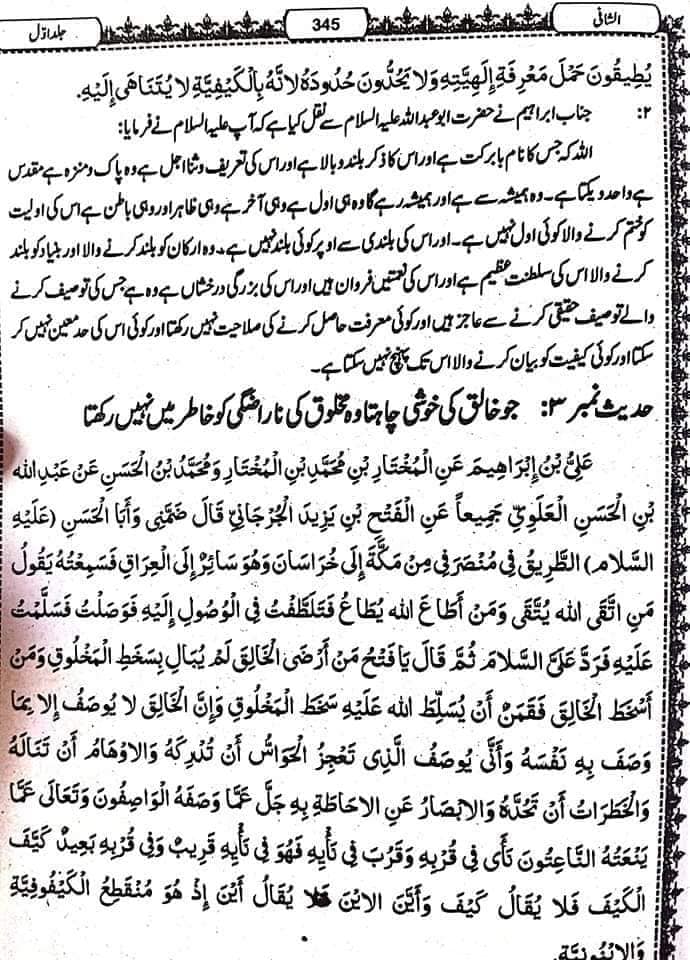 الشافی
345
جلد اوّل
يُطِيقُونَ حَمْلَ مَعْرِفَةِ إِلَهِيَّتِهِ وَلَا يَحُدُّونَ حُدُودَهُ لِأَنَّهُ بِالْكَيْفِيَّةِ لَا يُتَنَاهَى إِلَيْهِ.
۲: جناب ابراہیم نے حضرت ابو عبد اللہ علیہ السلام سے نقل کیا ہے کہ آپ علیہ السلام نے فرمایا:
اللہ کہ جس کا نام بابرکت ہے اور اس کا ذکر بلند و بالا ہے اور اس کی تعریف و ثنا اجل ہے وہ پاک و منزہ ہے مقدس
ہے واحد و یکتا ہے۔ وہ ہمیشہ سے ہے اور ہمیشہ رہے گا وہ ہی اول ہے وہی آخر ہے وہی ظاہر اور وہی باطن ہے اس کی اولیت
کو ختم کرنے والا کوئی اول نہیں ہے۔ اور اس کی بلندی سے اوپر کوئی بلند نہیں ہے۔ وہ ارکان کو بلند کرنے والا اور بنیاد کو بلند
کرنے والا اس کی سلطنت عظیم ہے اور اس کی نعمتیں فروان ہیں اور اس کی بزرگی درخشاں ہے وہ ہے جس کی توصیف کرنے
والے توصیف حقیقی کرنے سے عاجز ہیں اور کوئی معرفت حاصل کرنے کی صلاحیت نہیں رکھتا اور کوئی اس کی حد معین نہیں کر
سکتا اور کوئی کیفیت کو بیان کرنے والا اس تک پہنچ نہیں سکتا ہے۔
حدیث نمبر ۳: جو خالق کی خوشی چاہتا وہ مخلوق کی ناراضگی کو خاطر میں نہیں رکھتا
عَلِيُّ بْنُ إِبْرَاهِيمَ عَنِ الْمُخْتَارِ بْنِ مُحَمَّدِ بْنِ الْمُخْتَارِ وَمُحَمَّدُ بْنُ الْحَسَنِ عَنْ عَبْدِ الله
بْنِ الْحَسَنِ الْعَلَوِيِّ جَمِيعاً عَنِ الْفَتْحِ بْنِ يَزِيدَ الْجُرْجَانِيِّ قَالَ ضَمَّنِي وَأَبَا الْحَسَنِ (عَلَيْهِ
السَّلَام) الطَّرِيقُ فِي مُنْصَرَفِي مِنْ مَكَّةَ إِلَى خُرَاسَانَ وَهُوَ سَائِرٌ إِلَى الْعِرَاقِ فَسَمِعْتُهُ يَقُولُ
مَنِ اتَّقَى الله يُتَّقَى وَمَنْ أَطَاعَ الله يُطَاعُ فَتَلَطَّفْتُ فِي الْوُصُولِ إِلَيْهِ فَوَصَلْتُ فَسَلَّمْتُ
عَلَيْهِ فَرَدَّ عَلَيَّ السَّلَامَ ثُمَّ قَالَ يَا فَتْحُ مَنْ أَرْضَى الْخَالِقَ لَمْ يُبَالِ بِسَخَطِ الْمَخْلُوقِ وَمَنْ
أَسْخَطَ الْخَالِقَ فَقَمَنٌ أَنْ يُسَلِّطَ الله عَلَيْهِ سَخَطَ الْمَخْلُوقِ وَإِنَّ الْخَالِقَ لَا يُوصَفُ إِلَّا بِمَا
وَصَفَ بِهِ نَفْسَهُ وَأَنَّى يُوصَفُ الَّذِي تَعْجِزُ الْحَوَاسُّ أَنْ تُدْرِكَهُ وَالْأَوْهَامُ أَنْ تَنَالَهُ
وَالْخَطَرَاتُ أَنْ تَحُدَّهُ وَالْأَبْصَارُ عَنِ الْإِحَاطَةِ بِهِ جَلَّ عَمَّا وَصَفَهُ الْوَاصِفُونَ وَتَعَالَى عَمَّا
يَنْعَتُهُ النَّاعِتُونَ نَأَى فِي قُرْبِهِ وَقَرُبَ فِي نَأْيِهِ فَهُوَ فِي نَأْيِهِ قَرِيبٌ وَفِي قُرْبِهِ بَعِيدٌ كَيَّفَ
الْكَيْفَ فَلَا يُقَالُ كَيْفَ وَأَيَّنَ الْأَيْنَ فَلَا يُقَالُ أَيْنَ إِذْ هُوَ مُنْقَطِعُ الْكَيْفُوفِيَّةِ
وَالْأَيْنُونِيَّةِ.